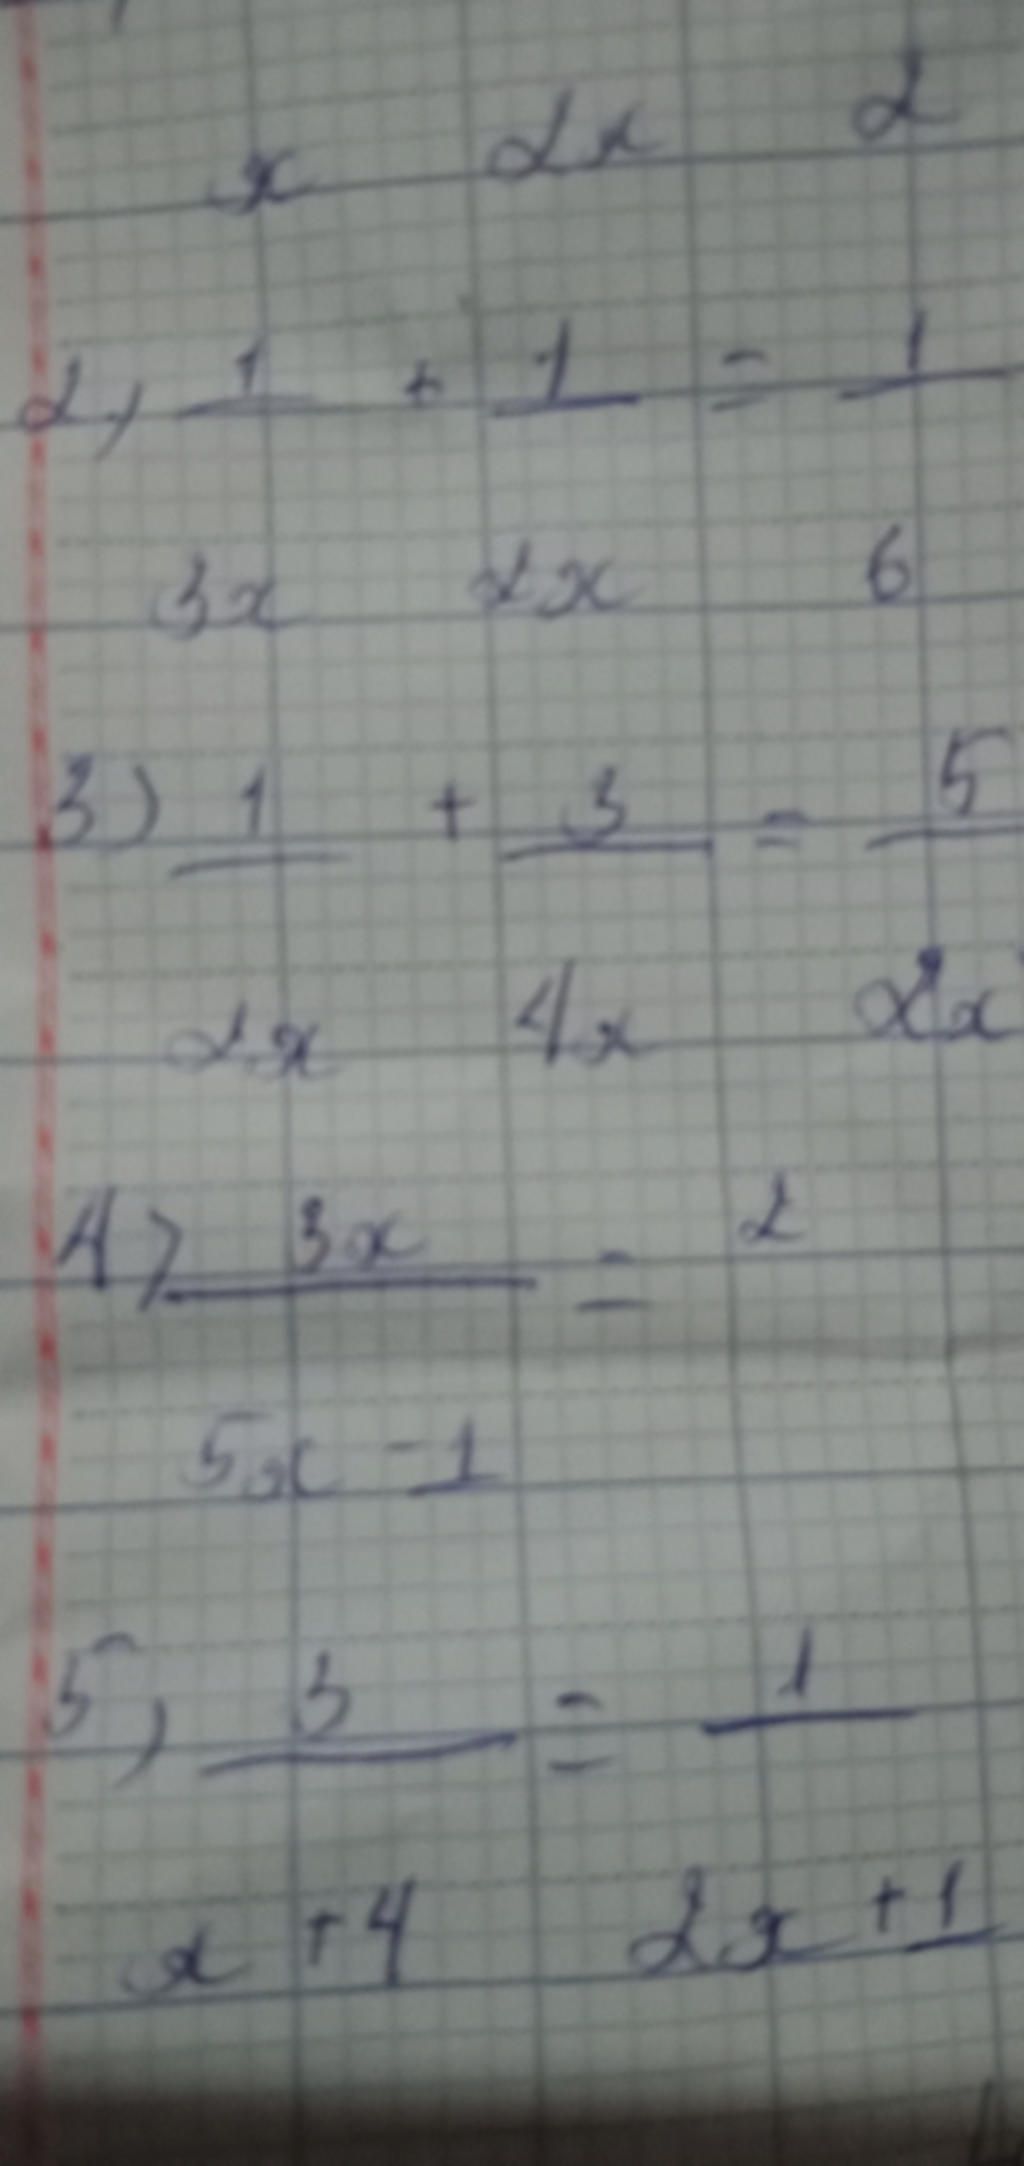 x 2x 2
2) 1/3x + 1/2x = 1/6
3) 1/2x + 3/4x = 5/2x
4) 3x/5x - 1 = 2
5) 3/x + 4 = 1/2x + 1